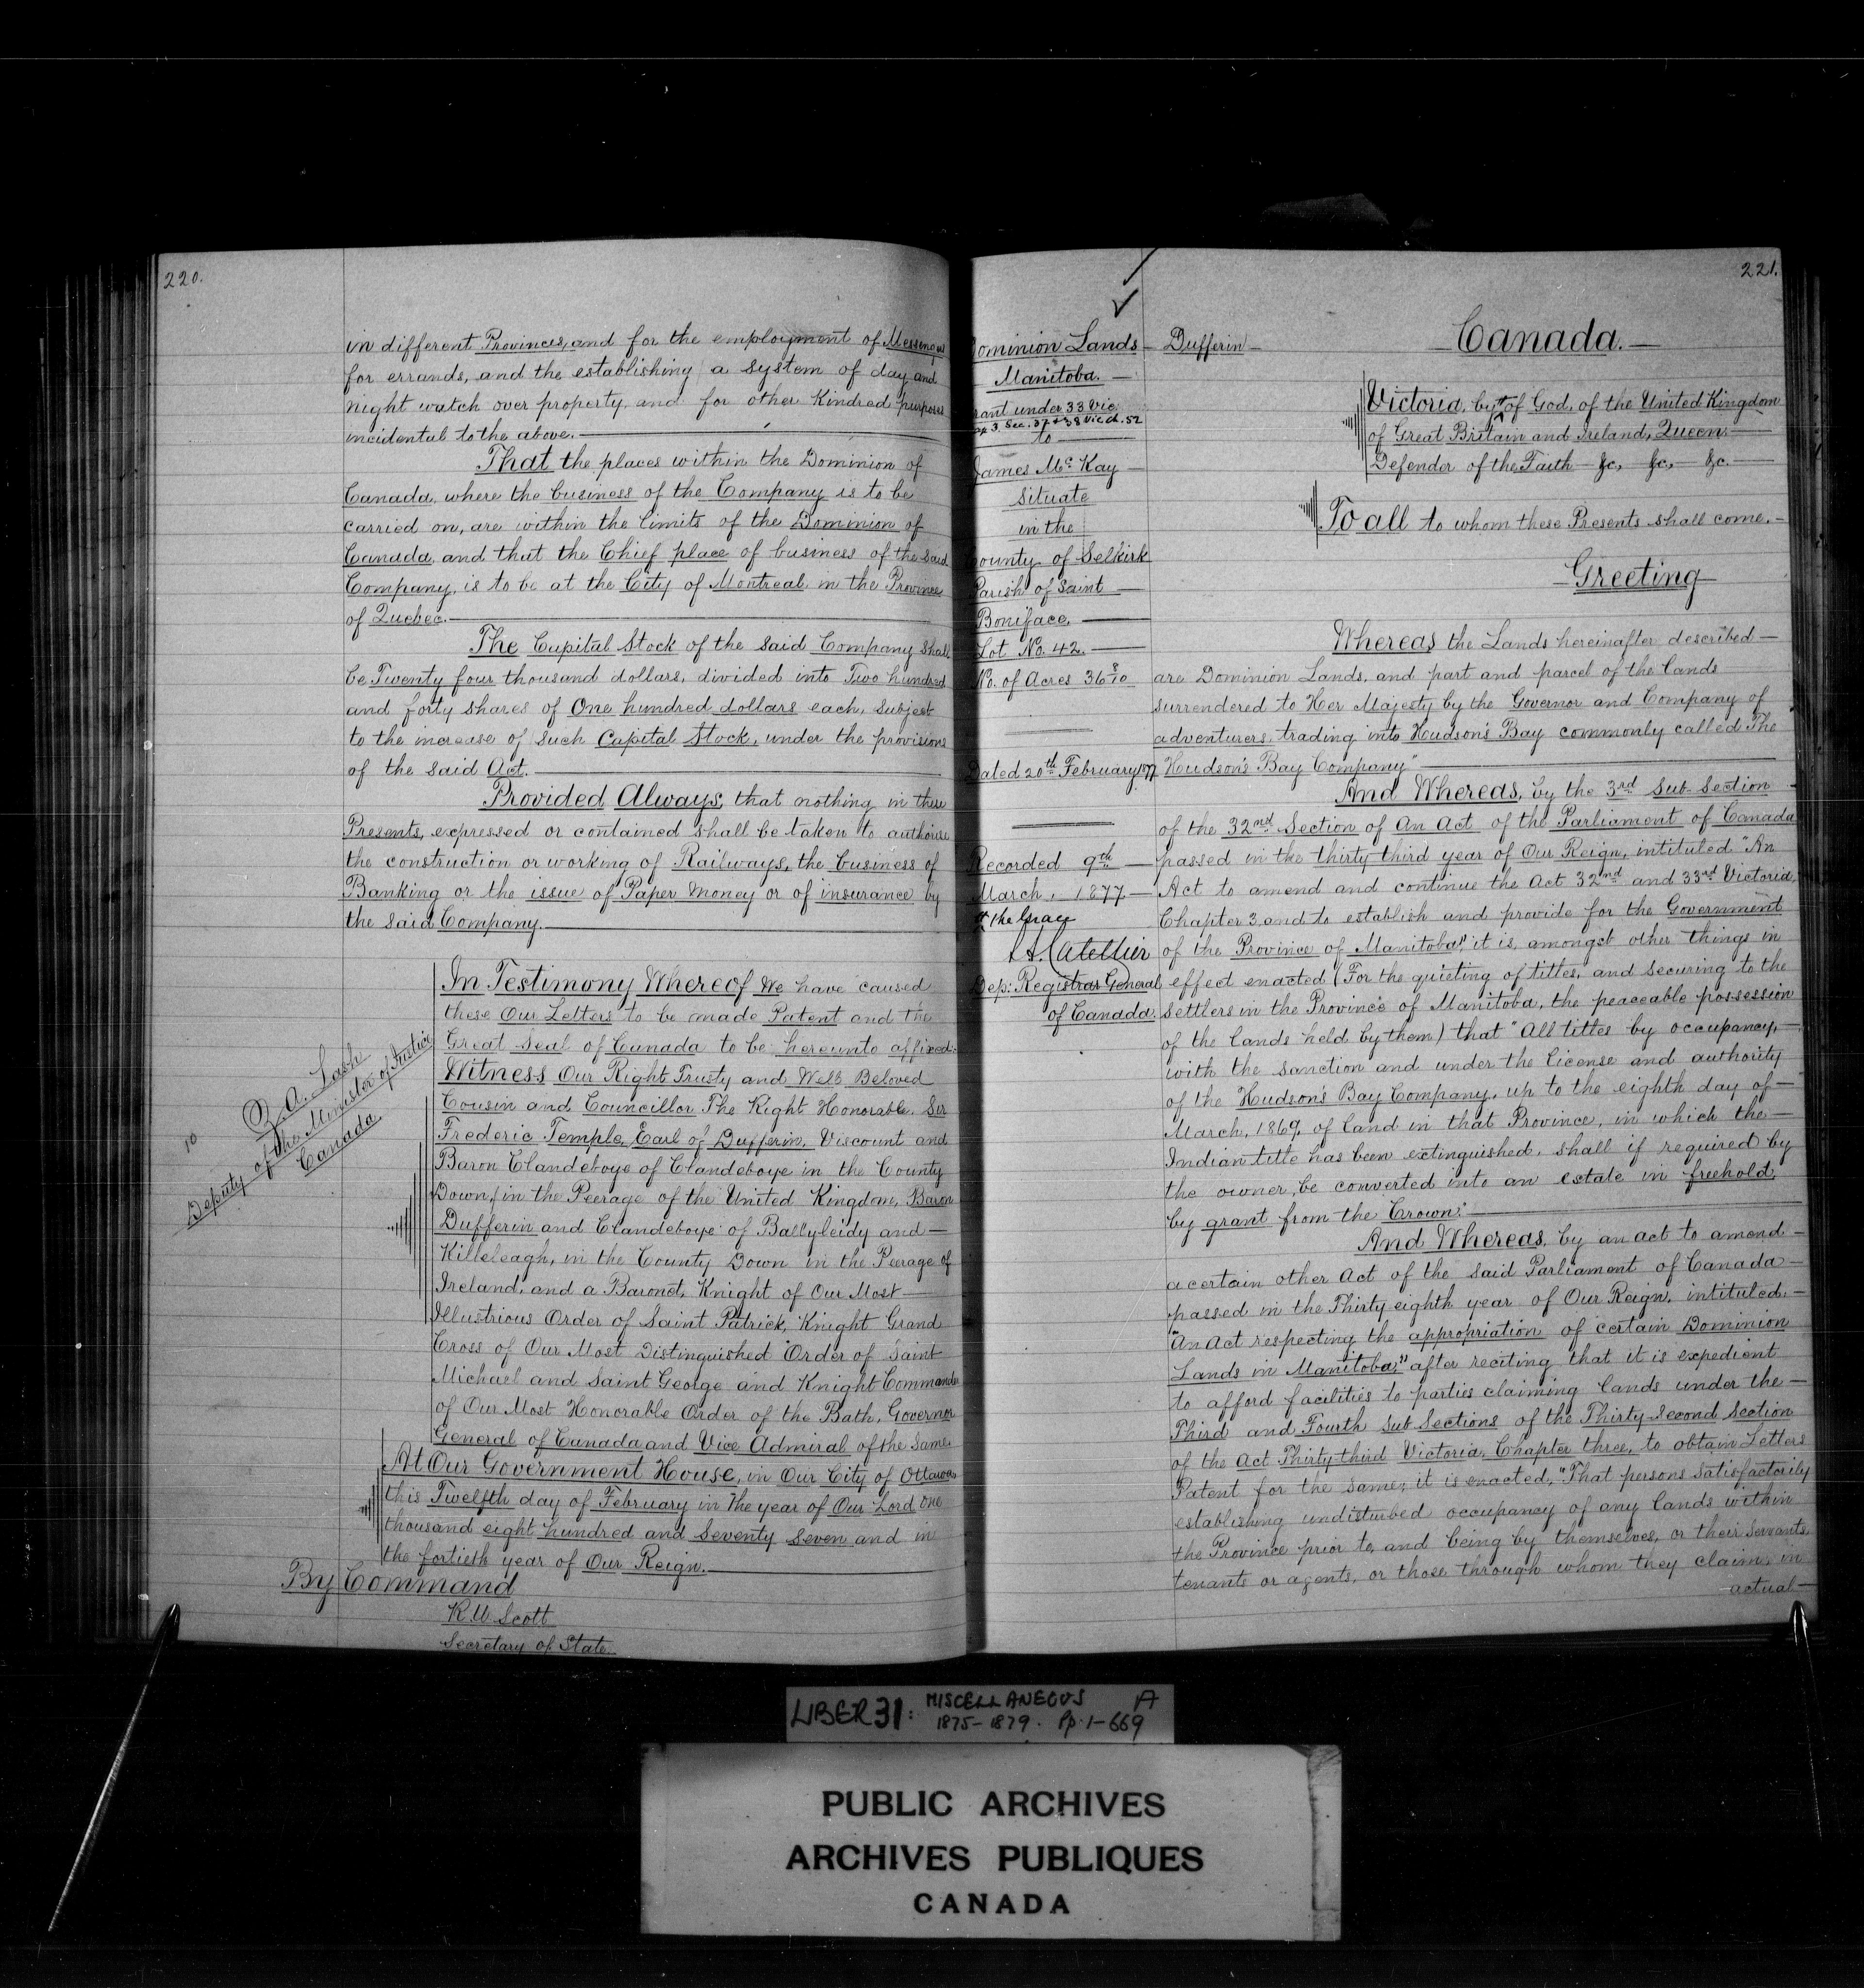 220.
in different Provinces, and for the employment of Messengers
for errands, and the establishing a system of day and
night watch over property, and for other Kindred purposes
incidental to the above.
That the places within the Dominion of
Canada, where the business of the Company is to be
carried on, are within the limits of the Dominion of
Canada, and that the Chief place of business of the said
Company, is to be at the City of Montreal in the Province
of Quebec.
The Capital Stock of the said Company shall
be Twenty four thousand dollars, divided into Two hundred
and forty shares of One hundred dollars each, subject
to the increase of such Capital Stock, under the provisions
of the said Act.
Provided Always, that nothing in these
Presents, expressed or contained shall be taken to authorise
the construction or working of Railways, the business of
Banking or the issue of Paper Money or of insurance by
the said Company.
In Testimony Whereof We have caused
these Our Letters to be made Patent and the
Great Seal of Canada to be hereunto affixed:
Witness Our Right Trusty and Well Beloved
Cousin and Councillor The Right Honorable Sir
Frederic Temple, Earl of Dufferin, Viscount and
Baron Clandeboye of Clandeboye in the County
Down, in the Peerage of the United Kingdom, Baron
Dufferin and Clandeboye of Ballyleidy and
Killeleagh, in the County Down in the Peerage of
Ireland, and a Baronet, Knight of Our Most
Illustrious Order of Saint Patrick, Knight Grand
Cross of Our Most Distinguished Order of Saint
Michael and Saint George and Knight Commander
of Our Most Honorable Order of the Bath, Governor
General of Canada and Vice Admiral of the same.
At Our Government House, in Our City of Ottawa
this Twelfth day of February in the year of Our Lord one
thousand eight hundred and Seventy Seven and in
the fortieth year of Our Reign.
By Command
R.W. Scott
Secretary of State
Z. A. Lash
Deputy of the Minister of Justice
Canada
10
221.
Dominion Lands
Manitoba.
Grant under 33 Vic:
Cap 3. Sec. 32 & 38 Vic ch. 52
to
James Mc Kay
situate
in the
County of Selkirk
Parish of Saint
Boniface
Lot No. 42.
No. of Acres 36 8/10
Dated 20th February 1877
Recorded 9th
March, 1877
A. Catellier
Dep: Registrar General
of Canada.
Dufferin
Canada.
Victoria, by of God, of the United Kingdom
of Great Britain and Ireland, Queen
Defender of the Faith &c, &c, &c.
To all to whom these Presents shall come.
Greeting
Whereas the Lands hereinafter described
are Dominion Lands, and part and parcel of the lands
surrendered to Her Majesty by the Governor and Company of
adventurers, trading into Hudson's Bay commonly called The
Hudson's Bay Company"
And Whereas, by the 3rd Sub-Section
of the 32nd Section of An Act of the Parliament of Canada
passed in the thirty third year of Our Reign, intituled "An
Act to amend and continue the Act 32nd and 33rd Victoria,
Chapter 3, and to establish and provide for the Government
of the Province of Manitoba", it is, amongst other things in
effect enacted (For the quieting of titles, and securing to the
settlers in the Province of Manitoba, the peaceable possession
of the lands held by them) that "All titles by occupancy,
with the sanction and under the license and authority
of the Hudson's Bay Company, up to the eighth day of
March, 1869, of land in that Province, in which the
Indian title has been extinguished, shall if required by
the owner, be converted into an estate in freehold,
by grant from the Crown."
And Whereas, by an act to amend
a certain other Act of the said Parliament of Canada
passed in the Thirty eighth year of Our Reign, intituled:
"An Act respecting the appropriation of certain Dominion
Lands in Manitoba," after reciting that it is expedient
to afford facilities to parties claiming lands under the
Third and Fourth Sub Sections of the Thirty-Second Section
of the Act Thirty-third Victoria, Chapter three, to obtain Letters
Patent for the same, it is enacted, "That persons satisfactorily
establishing undisturbed occupancy of any lands within
the Province prior to, and being by themselves, or their servants,
tenants or agents, or those through whom they claim, in
actual
LIBER 31: MISCELLANEOUS A
1875-1879. Pp. 1-669
PUBLIC ARCHIVES
ARCHIVES PUBLIQUES
CANADA